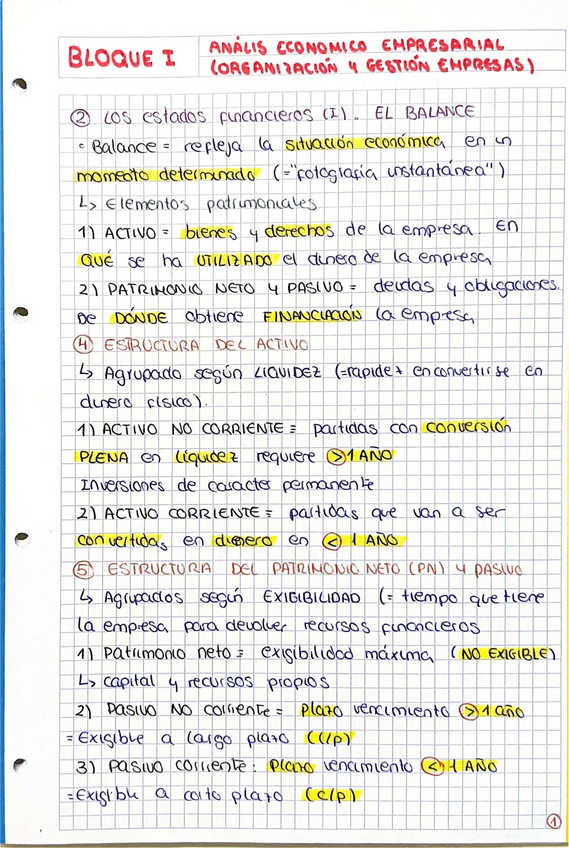 BLOQUE I
ANÁLIS ECONOMICO EMPRESARIAL
(ORGANIZACIÓN Y GESTIÓN EMPRESAS)
② LOS estados financieros (I). EL BALANCE
° Balance = refleja la situación económica en un
momento determinado (="fotografía instantánea")
↳ Elementos patrimoniales
1) ACTIVO = bienes y derechos de la empresa. En
QUÉ se ha UTILIZADO el dinero de la empresa
2) PATRIMONIO NETO Y PASIVO = deudas y obligaciones.
De DÓNDE obtiene FINANCIACIÓN la empresa
④ ESTRUCTURA DEL ACTIVO
↳ Agrupado según LIQUIDEZ (=rapidez en convertirse en
dinero físico).
1) ACTIVO NO CORRIENTE = partidas con conversión
PLENA en liquidez requiere > 1 AÑO
Inversiones de caracter permanente
2) ACTIVO CORRIENTE = partidas que van a ser
convertidas en dinero en < 1 AÑO
⑤ ESTRUCTURA DEL PATRIMONIO NETO (PN) Y PASIVO
↳ Agrupados según EXIGIBILIDAD (= tiempo que tiene
la empresa para devolver recursos financieros
1) Patrimonio neto = exigibilidad máxima (NO EXIGIBLE)
↳ capital y recursos propios
2) Pasivo NO corriente = Plazo vencimiento > 1 año
= Exigible a largo plazo (l/p)
3) Pasivo corriente: Plazo vencimiento < 1 AÑO
= Exigible a corto plazo (c/p)
①